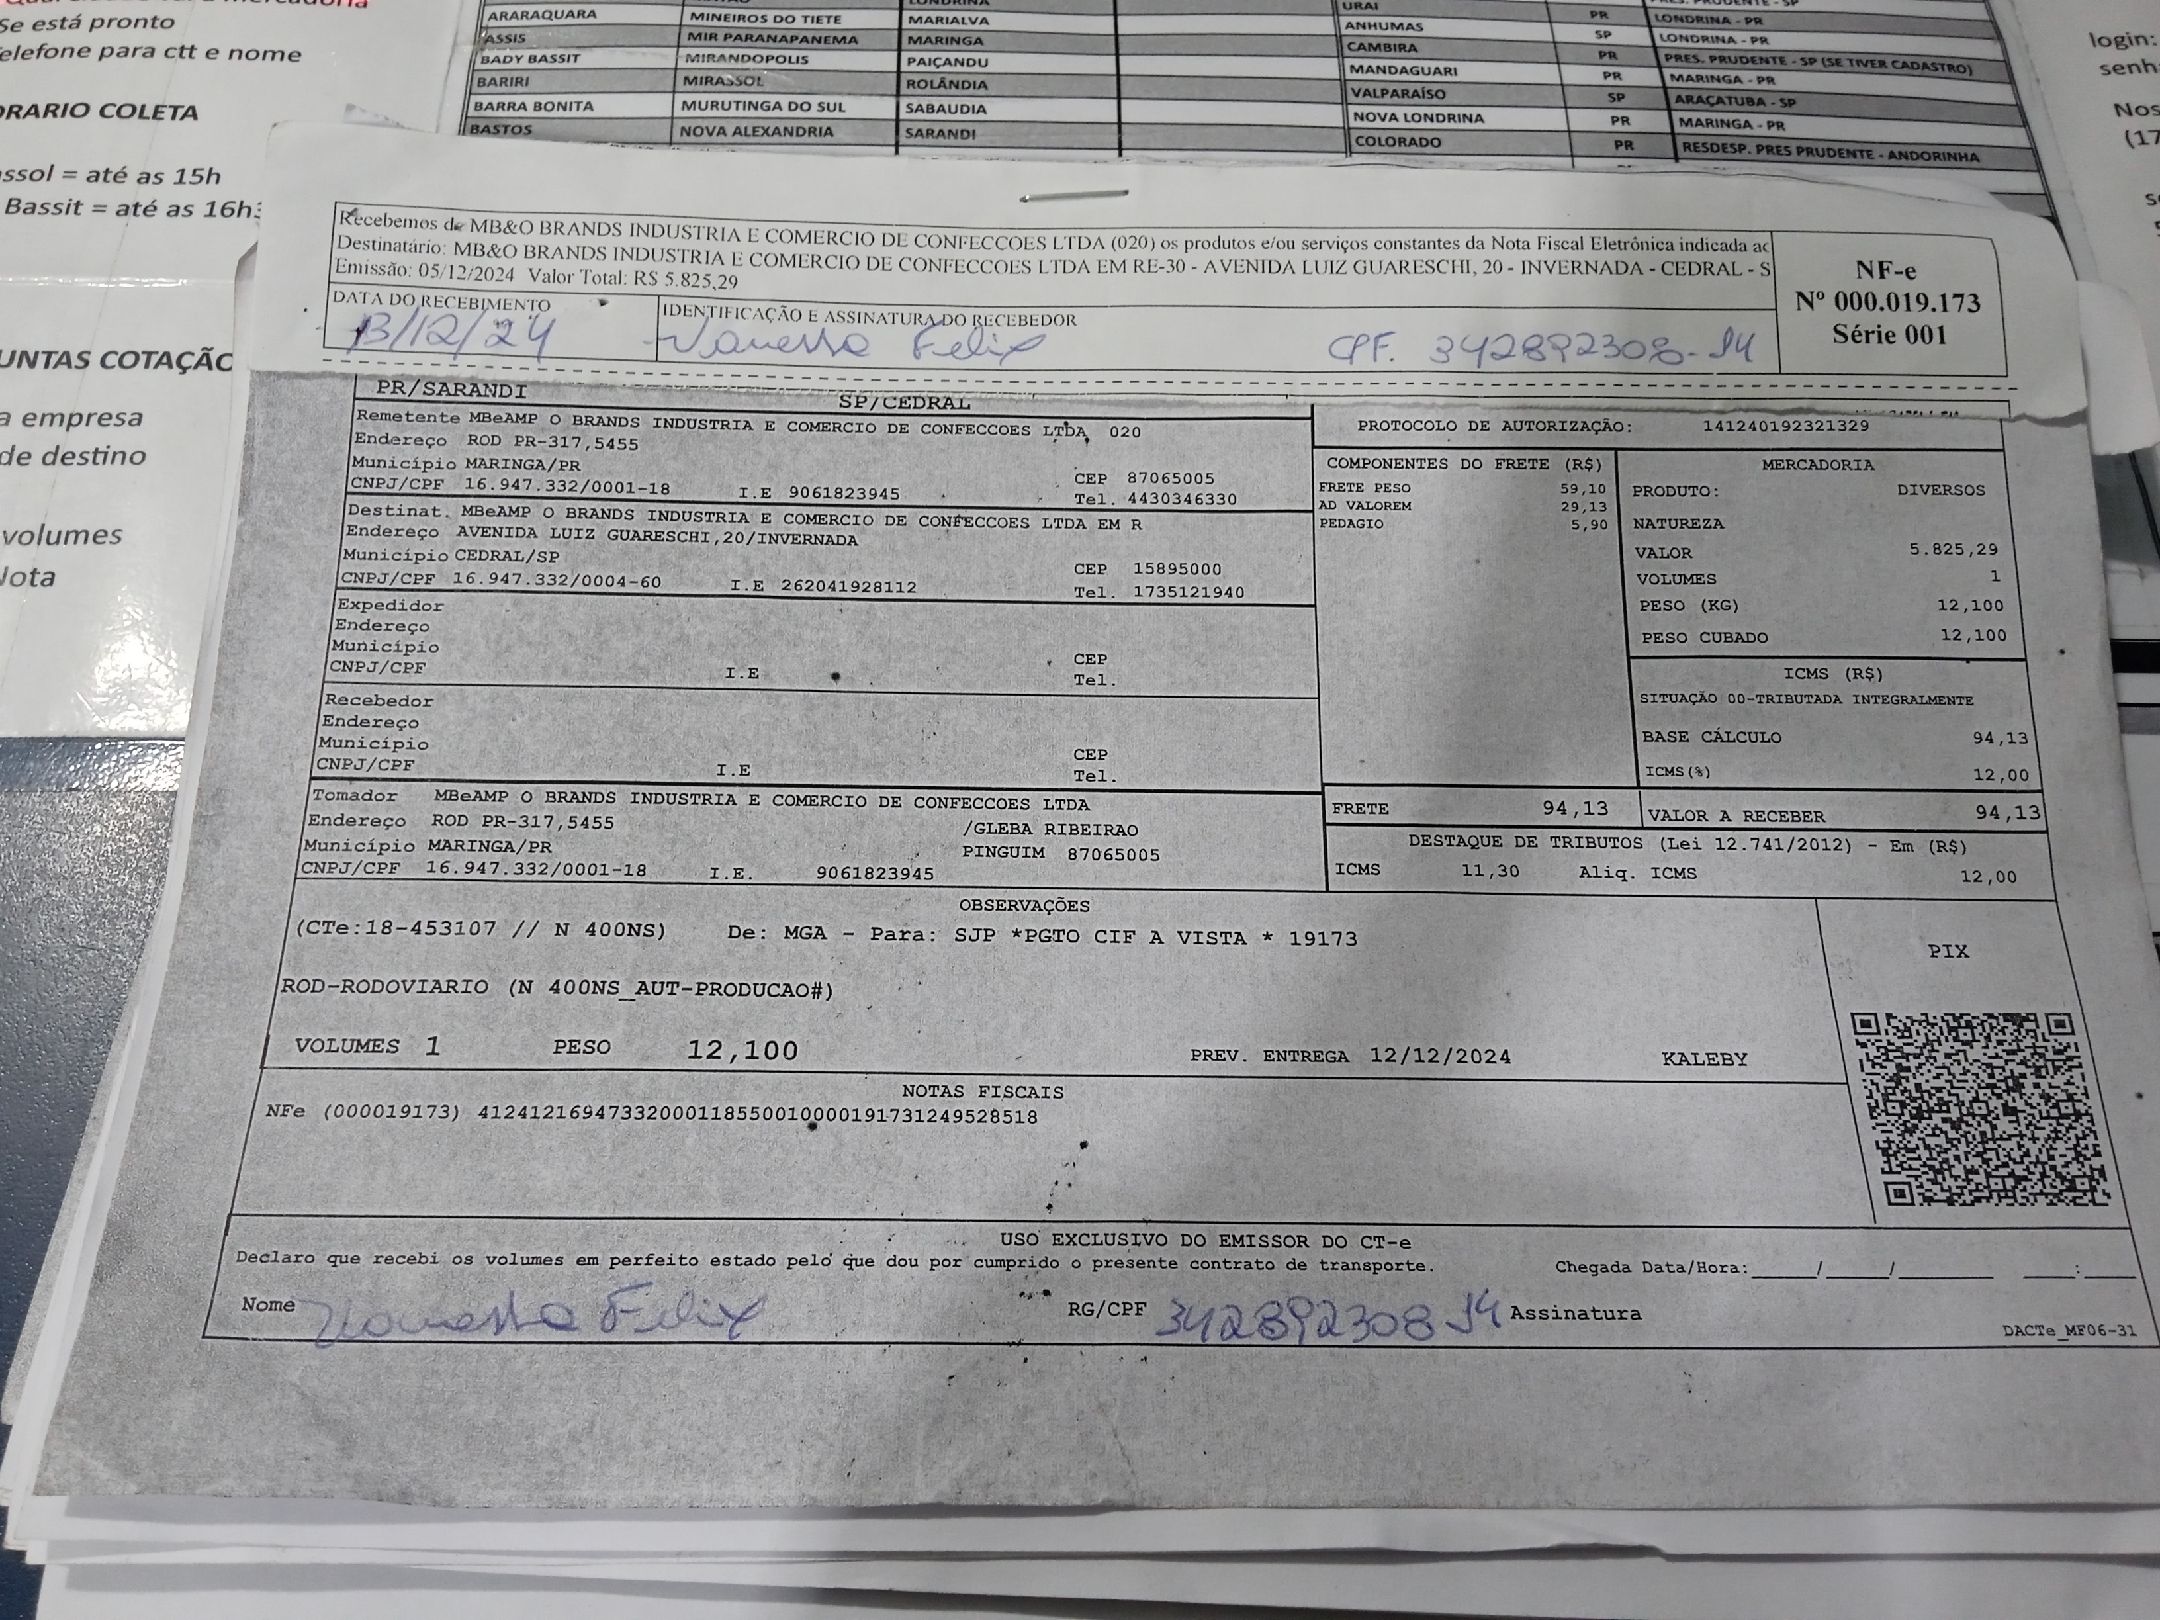 Se está pronto
elefone para ctt e nome
ORARIO COLETA
ssol = até as 15h
Bassit = até as 16h
UNTAS COTAÇÃO
a empresa
de destino
volumes
Nota
ARARAQUARA MINEIROS DO TIETE MARIALVA
ASSIS MIR PARANAPANEMA MARINGA
BADY BASSIT MIRANDOPOLIS PAIÇANDU
BARIRI MIRASSOL ROLÂNDIA
BARRA BONITA MURUTINGA DO SUL SABAUDIA
BASTOS NOVA ALEXANDRIA SARANDI
URAI PR LONDRINA - PR
ANHUMAS SP LONDRINA - PR
CAMBIRA PR PRES. PRUDENTE - SP (SE TIVER CADASTRO)
MANDAGUARI PR MARINGA - PR
VALPARAÍSO SP ARAÇATUBA - SP
NOVA LONDRINA PR MARINGA - PR
COLORADO PR RESDESP. PRES PRUDENTE - ANDORINHA
login:
senh
Nos
(17
Recebemos de MB&O BRANDS INDUSTRIA E COMERCIO DE CONFECCOES LTDA (020) os produtos e/ou serviços constantes da Nota Fiscal Eletrônica indicada ao
Destinatário: MB&O BRANDS INDUSTRIA E COMERCIO DE CONFECCOES LTDA EM RE-30 - AVENIDA LUIZ GUARESCHI, 20 - INVERNADA - CEDRAL - S
Emissão: 05/12/2024 Valor Total: R$ 5.825,29
NF-e
Nº 000.019.173
Série 001
DATA DO RECEBIMENTO IDENTIFICAÇÃO E ASSINATURA DO RECEBEDOR
13/12/24 Vanessa Felix CPF. 342892308-14
PR/SARANDI SP/CEDRAL
Remetente MBeAMP O BRANDS INDUSTRIA E COMERCIO DE CONFECCOES LTDA 020
Endereço ROD PR-317,5455
Município MARINGA/PR CEP 87065005
CNPJ/CPF 16.947.332/0001-18 I.E 9061823945 Tel. 4430346330
Destinat. MBeAMP O BRANDS INDUSTRIA E COMERCIO DE CONFECCOES LTDA EM R
Endereço AVENIDA LUIZ GUARESCHI,20/INVERNADA
Município CEDRAL/SP CEP 15895000
CNPJ/CPF 16.947.332/0004-60 I.E 262041928112 Tel. 1735121940
Expedidor
Endereço
Município CEP
CNPJ/CPF I.E Tel.
Recebedor
Endereço
Município CEP
CNPJ/CPF I.E Tel.
Tomador MBeAMP O BRANDS INDUSTRIA E COMERCIO DE CONFECCOES LTDA
Endereço ROD PR-317,5455 /GLEBA RIBEIRAO
Município MARINGA/PR PINGUIM 87065005
CNPJ/CPF 16.947.332/0001-18 I.E. 9061823945
PROTOCOLO DE AUTORIZAÇÃO: 141240192321329
COMPONENTES DO FRETE (R$)
FRETE PESO 59,10
AD VALOREM 29,13
PEDAGIO 5,90
MERCADORIA
PRODUTO: DIVERSOS
NATUREZA
VALOR 5.825,29
VOLUMES 1
PESO (KG) 12,100
PESO CUBADO 12,100
ICMS (R$)
SITUAÇÃO 00-TRIBUTADA INTEGRALMENTE
BASE CÁLCULO 94,13
ICMS(%) 12,00
FRETE 94,13 VALOR A RECEBER 94,13
DESTAQUE DE TRIBUTOS (Lei 12.741/2012) - Em (R$)
ICMS 11,30 Aliq. ICMS 12,00
OBSERVAÇÕES
(CTe:18-453107 // N 400NS) De: MGA - Para: SJP *PGTO CIF A VISTA * 19173
ROD-RODOVIARIO (N 400NS_AUT-PRODUCAO#)
VOLUMES 1 PESO 12,100 PREV. ENTREGA 12/12/2024 KALEBY
PIX
NOTAS FISCAIS
NFe (000019173) 41241216947332000118550010000191731249528518
USO EXCLUSIVO DO EMISSOR DO CT-e
Declaro que recebi os volumes em perfeito estado pelo que dou por cumprido o presente contrato de transporte. Chegada Data/Hora:_____/_____/_______ ____:____
Nome Vanessa Felix RG/CPF 342892308 14 Assinatura
DACTe_MF06-31